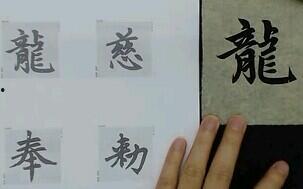 龍 慈 龍
奉 勅